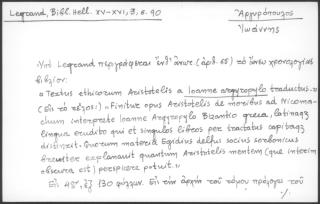 Legrand, Bibl. Hell. XV-XVI, 3, σ. 90
Ἀργυρόπουλος
Ἰωάννης
Ὑπὸ Legrand περιγράφεται ἐνθ' ἀνωτ. (ἀριθ. 65) τὸ ἄνευ χρονολογίας
βιβλίον:
« Textus ethicorum Aristotelis a Ioanne argyropylo traductus. »
(Εἰς τὸ τέλος:) « Finitur opus Aristotelis de moribus ad Nicoma-
chum interprete Ioanne Argyropylo Bizantio greca, latinaqz
lingua erudito qui et singulos libros per tractatus capitaqz
distinxit. Quorum materia Egidius delfus socius sorbonicus
breviter explanavit quantum Aristotelis mentem (que interim
obscura est) perspicere potuit. »
Εἰς 4ον, ἐξ 130 φύλλων. Εἰς τὴν ἀρχὴν τοῦ τόμου πρόλογος τοῦ
./.